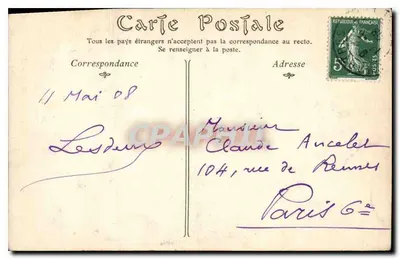 Carte Postale
Tous les pays étrangers n'acceptent pas la correspondance au recto.
Se renseigner à la poste.
Correspondance
Adresse
RÉPUBLIQUE FRANÇAISE
5c
POSTES
11 Mai 08
Monsieur
Claude Ancelet
104, rue de Rennes
Paris 6e
CPARAMA